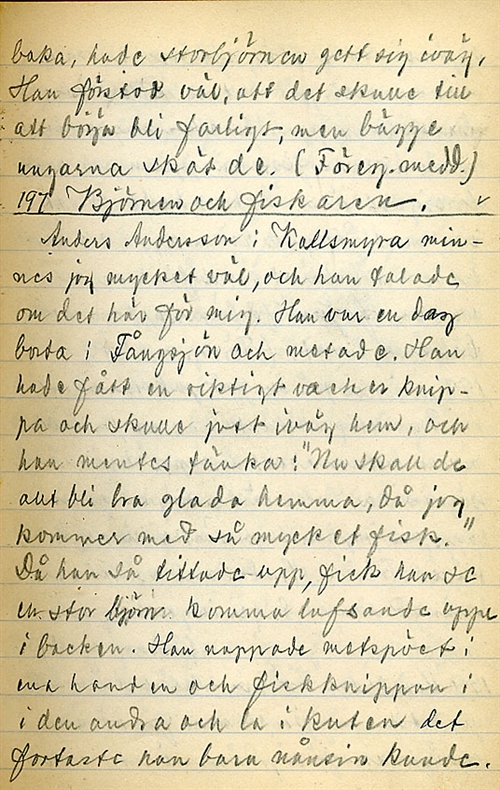 baka, hade storbjörnen gett sig iväg.
Han förstod väl, att det skulle till
att börja bli farligt, men bägge
ungarna sköt de. (Föreg. medd.)
197 Björnen och fiskaren. v
Anders Andersson i Kallsmyra min-
nes jag mycket väl, och han talade
om det här för mig. Han var en dag
borta i Fångsjön och metade. Han
hade fått en riktigt vacker knip-
pa och skulle just iväg hem, och
han mentes tänka: "Nu skall de
allt bli bra glada hemma, då jag
kommer med så mycket fisk."
Då han så tittade upp, fick han se
en stor björn komma lufsande uppe
i backen. Han nappade metspöet i
ena handen och fiskknippan i
i den andra och la i kuten det
fortaste han bara nånsin kunde.